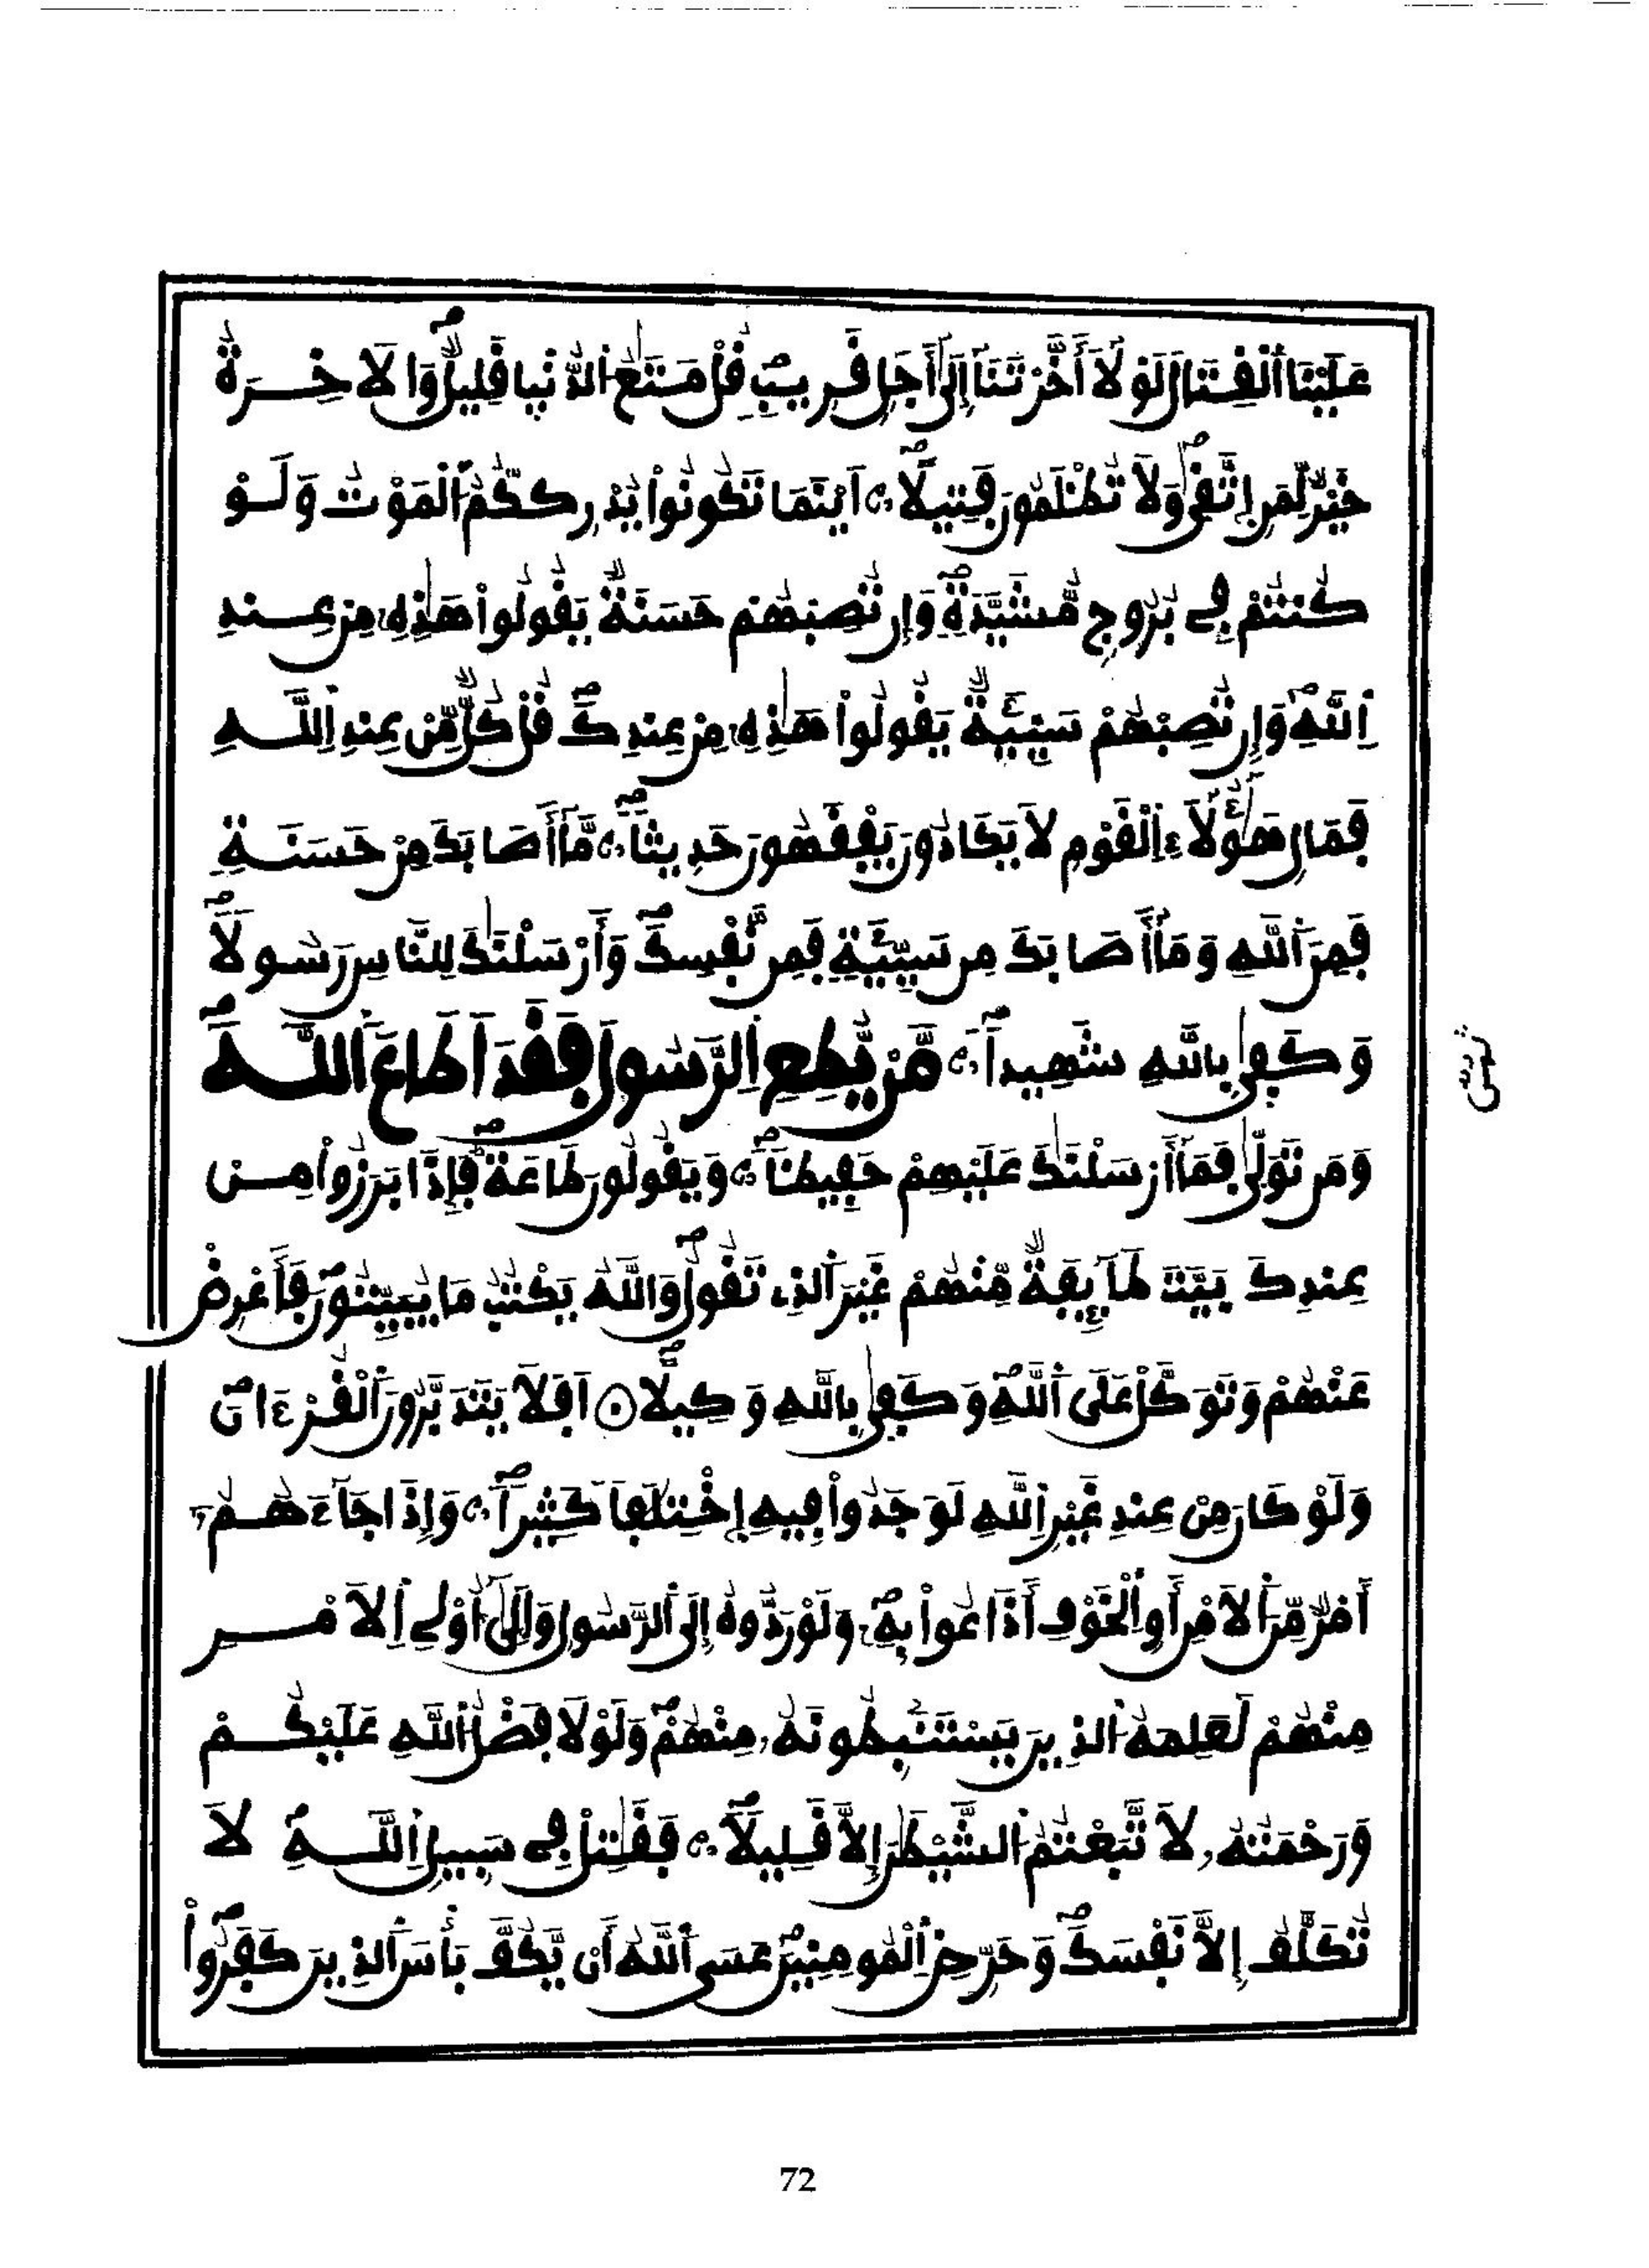 عَلَيْنَا اَ۬لْقِتَالَ لَوْلَآ أَخَّرْتَنَآ إِلَىٰٓ أَجَلٖ قَرِيبٖۖ قُلْ مَتَٰعُ اُ۬لدُّنْيَا قَلِيلٞۖ وَالَاخِرَةُ
خَيْرٞ لِّمَنِ اِ۪تَّق۪ىٰۖ وَلَا تُظْلَمُونَ فَتِيلاًۖ اَيْنَمَا تَكُونُواْ يُدْرِككُّمُ اُ۬لْمَوْتُ وَلَوْ
كُنتُمْ فِے بُرُوجٖ مُّشَيَّدَةٖۖ وَإِن تُصِبْهُمْ حَسَنَةٞ يَقُولُواْ هَٰذِهِۦ مِنْ عِندِ
اِ۬للَّهِۖ وَإِن تُصِبْهُمْ سَيِّئَةٞ يَقُولُواْ هَٰذِهِۦ مِنْ عِندِكَۖ قُلْ كُلّٞ مِّنْ عِندِ اِ۬للَّهِ
فَمَالِ هَٰٓؤُلَآءِ اِ۬لْقَوْمِ لَا يَكَادُونَ يَفْقَهُونَ حَدِيثاٗۖ مَّآ أَصَابَكَ مِنْ حَسَنَةٖ
فَمِنَ اَ۬للَّهِ وَمَآ أَصَابَكَ مِن سَيِّئَةٖ فَمِن نَّفْسِكَۖ وَأَرْسَلْنَٰكَ لِلنَّاسِ رَسُولاٗۖ
وَكَف۪ىٰ بِاللَّهِ شَهِيداٗۖ مَّنْ يُّطِعِ اِ۬لرَّسُولَ فَقَدَ اَطَاعَ اَ۬للَّهَۖ
وَمَن تَوَلّ۪ىٰ فَمَآ أَرْسَلْنَٰكَ عَلَيْهِمْ حَفِيظاٗۖ وَيَقُولُونَ طَاعَةٞۖ فَإِذَا بَرَزُواْ مِنْ
عِندِكَ بَيَّتَ طَآئِفَةٞ مِّنْهُمْ غَيْرَ اَ۬لذِے تَقُولُۖ وَاللَّهُ يَكْتُبُ مَا يُبَيِّتُونَۖ فَأَعْرِضْ
عَنْهُمْ وَتَوَكَّلْ عَلَى اَ۬للَّهِۖ وَكَف۪ىٰ بِاللَّهِ وَكِيلاً اَفَلَا يَتَدَبَّرُونَ اَ۬لْقُرْءَانَۖ
وَلَوْ كَانَ مِنْ عِندِ غَيْرِ اِ۬للَّهِ لَوَجَدُواْ فِيهِ اِ۪خْتِلَٰفاٗ كَثِيراٗۖ وَإِذَا جَآءَهُمُۥٓ
أَمْرٞ مِّنَ اَ۬لَامْنِ أَوِ اِ۬لْخَوْفِ أَذَاعُواْ بِهِۦۖ وَلَوْ رَدُّوهُ إِلَى اَ۬لرَّسُولِ وَإِلَىٰٓ أُوْلِے اِ۬لَامْرِ
مِنْهُمْ لَعَلِمَهُ اُ۬لذِينَ يَسْتَنۢبِطُونَهُۥ مِنْهُمْۖ وَلَوْلَا فَضْلُ اُ۬للَّهِ عَلَيْكُمْ
وَرَحْمَتُهُۥ لَاتَّبَعْتُمُ اُ۬لشَّيْطَٰنَ إِلَّا قَلِيلاٗۖ فَقَٰتِلْ فِے سَبِيلِ اِ۬للَّهِۖ لَا
تُكَلَّفُ إِلَّا نَفْسَكَۖ وَحَرِّضِ اِ۬لْمُومِنِينَۖ عَسَى اَ۬للَّهُ أَنْ يَّكُفَّ بَأْسَ اَ۬لذِينَ كَفَرُواْۖ
72